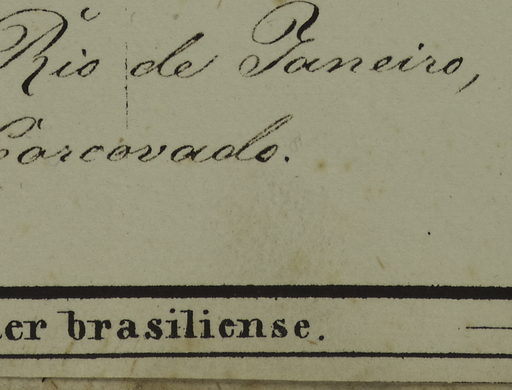 Rio de Janeiro,
Corcovado.
brasiliense.